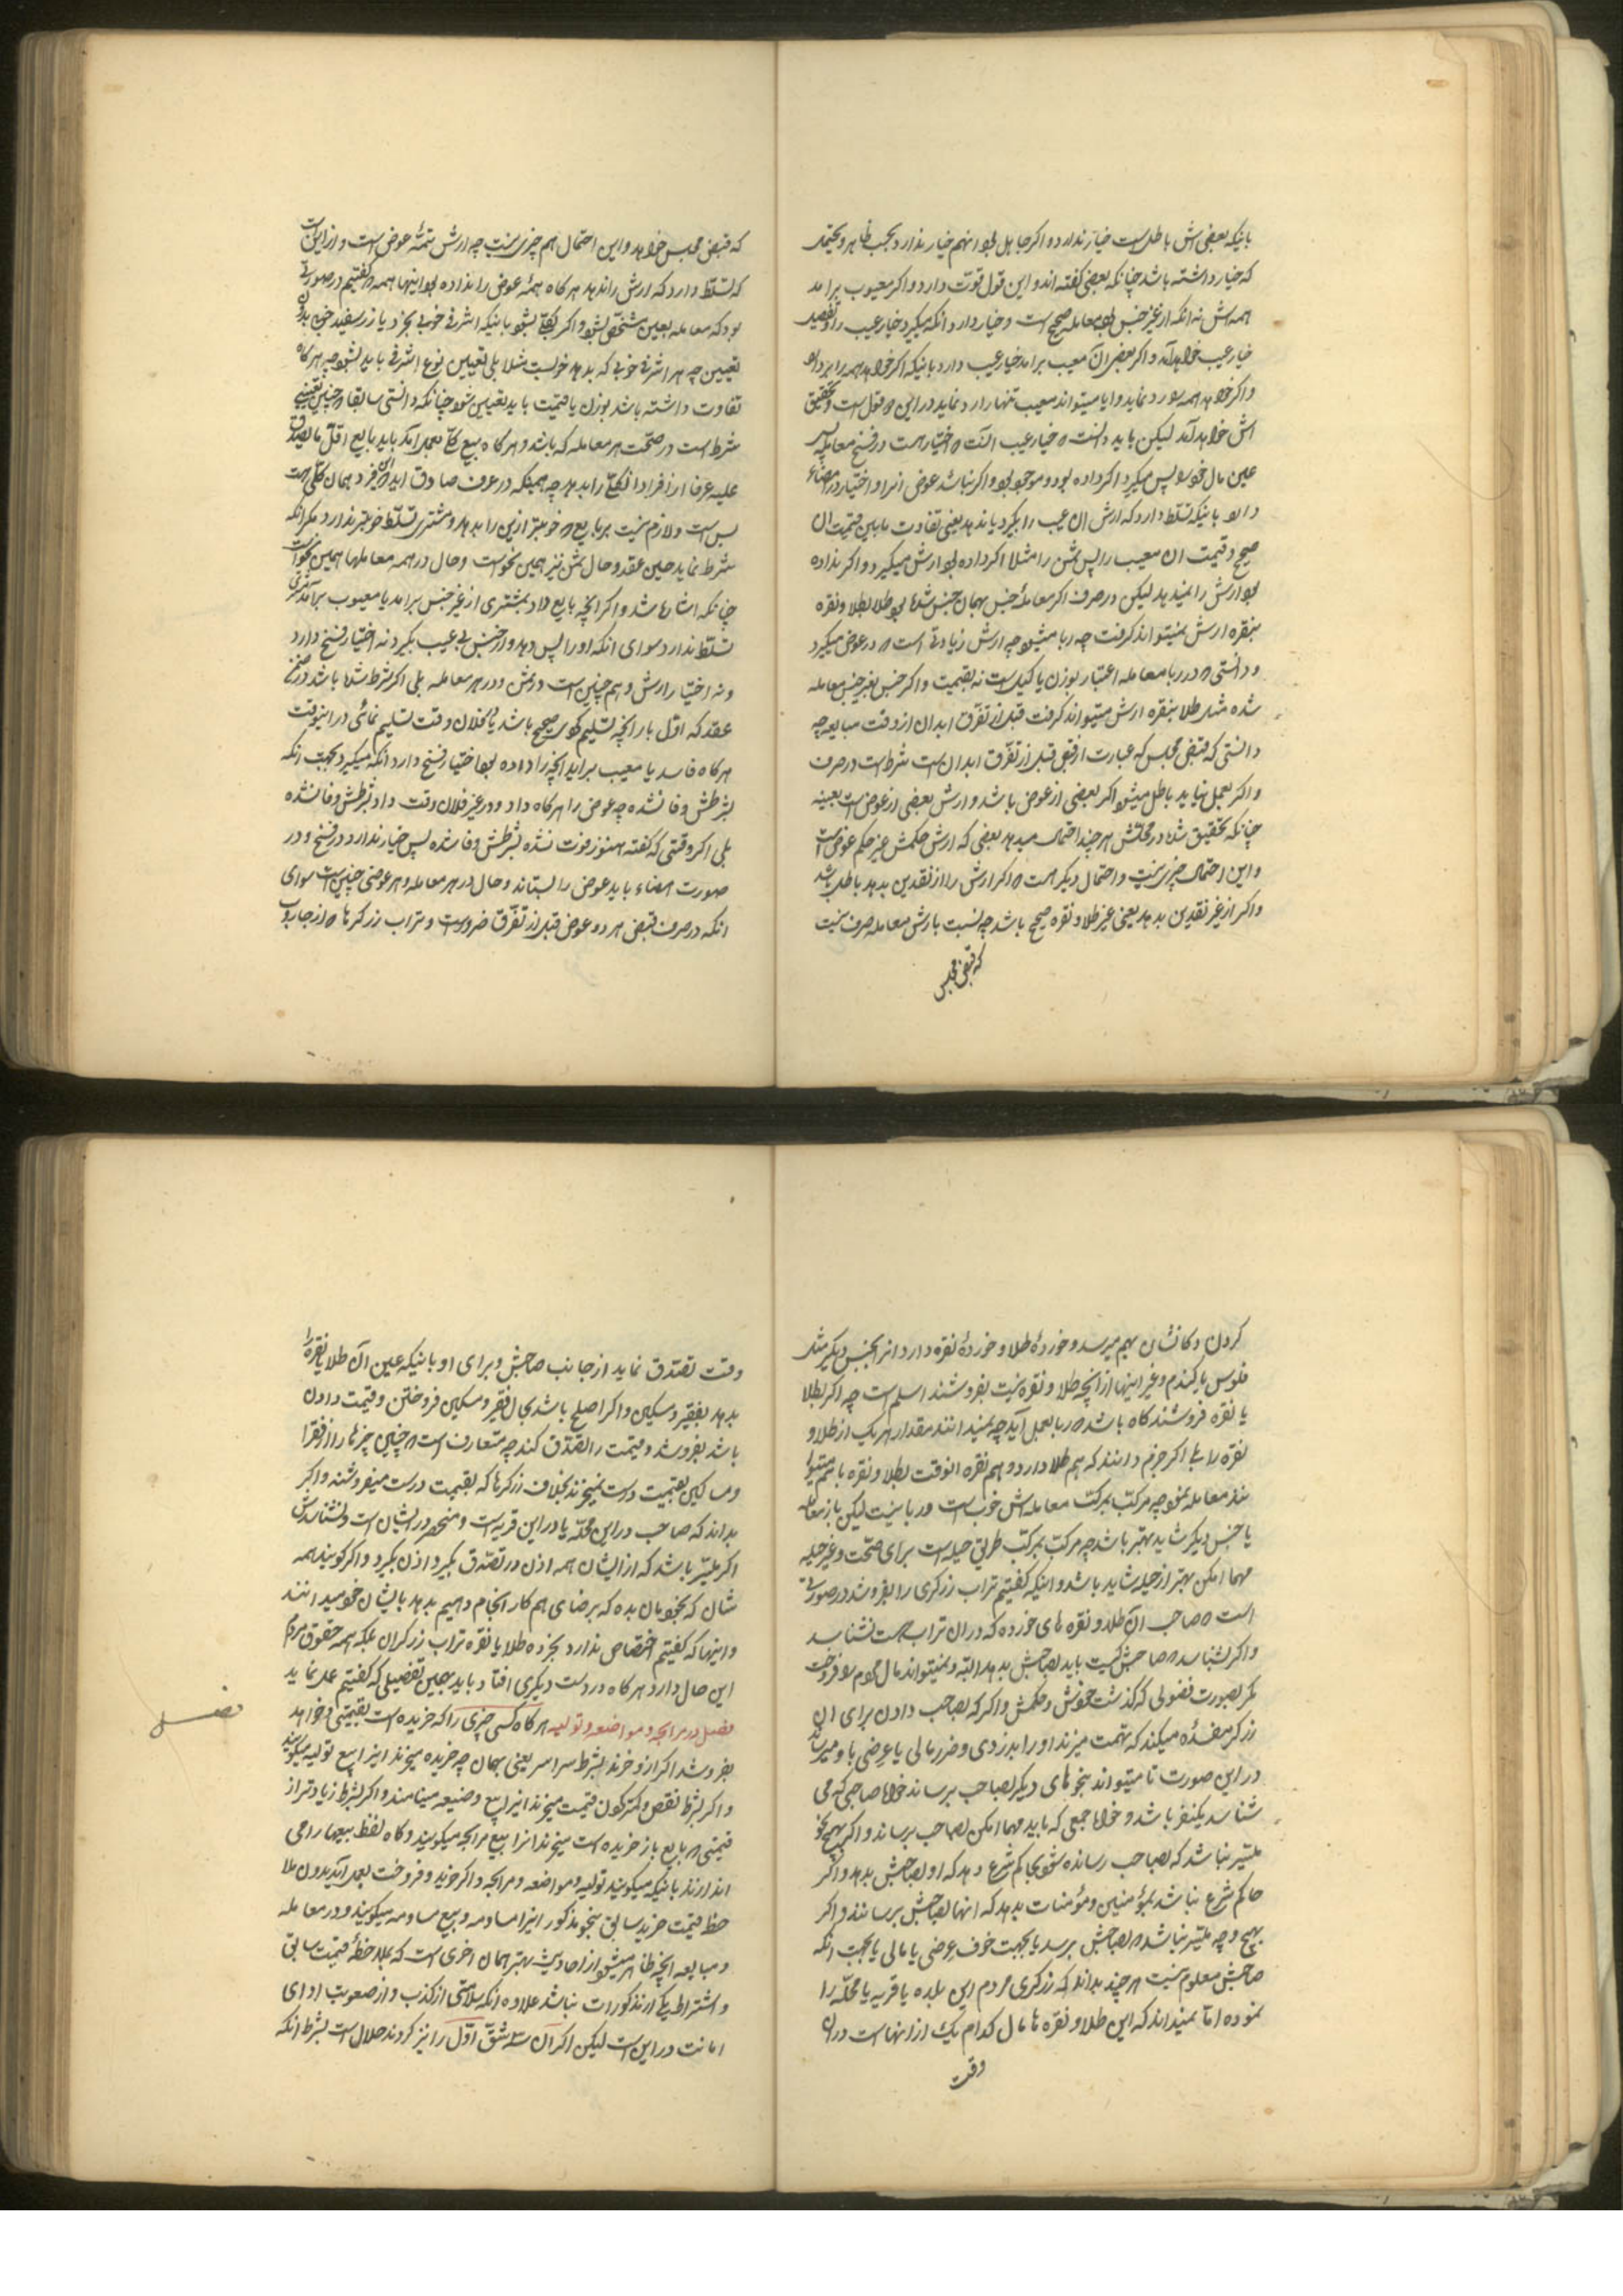 بانیکه بعضی اش باطلست خیار ندارد و اگر جاهل بود انهم خیار ندارد بحسب ظاهر و یحتمل
که خیار داشته باشد چنانکه بعضی گفته اند و این قول قوت دارد و اگر معیوب برامد
همه اش نه انکه از غیر جنس بود معامله صحیح است و خیار دارد انکه میگیرد خیار عیب را و تفصیل
خیار عیب خواهد آمد و اگر بعضی ان معیب برامد خیار عیب دارد بانیکه اگر خواهد همه را بردارد
و اگر خواهد همه را رد نماید و ایا میتواند معیب تنها را رد نماید در این دو قول است و تحقیق
اش خواهد آمد لیکن باید دانست که خیار عیب انست که اختیار هست در فسخ معامله پس
عین مال خود را پس میگیرد اگر داده بود و موجود بود و اگر نباشد عوض انرا و اختیار در امضاء
دارد بانیکه تسلط دارد که ارش ان عیب را بگیرد یا ندهد یعنی تفاوت مابین قیمت ان
صحیح و قیمت ان معیب را پس ثمن را مثلا اگر داده بود ارش میگیرد و اگر نداده
بود ارش را نمیدهد لیکن در صرف اگر معامله جنس بهمان جنس شده بود طلا بطلا و نقره
بنقره ارش نمیتواند گرفت چه ربا میشود چه ارش زیادتی است که در عوض میگیرد
و دانستی که در ربا معامله اعتبار بوزن یا کیل است نه بقیمت و اگر جنس بغیر جنس معامله
شده مثل طلا بنقره ارش میتواند گرفت قبل از تفرق ابدان از وقت مبایعه چه
دانستی که قبض مجلس که عبارت از قبض قبل از تفرق ابدان است شرط است در صرف
و اگر بعمل نیاید باطل میشود اگر بعضی از عوض باشد و ارش بعضی از عوض است بعینه
چنانکه تحقیق شده در محلش هر چند احتمال میدهد بعضی که ارش حکمش غیر حکم عوض است
و این احتمال چیزی نیست و احتمال دیگر هست که اگر ارش را از نقدین بدهد باطل باشد
و اگر از غیر نقدین بدهد یعنی غیر طلا و نقره صحیح باشد چه نسبت بارش معامله صرف نیست
که قبض مجلس
که قبض مجلس خواهد و این احتمال هم چیزی نیست چه ارش تتمهٔ عوض است و از این است
که تسلط دارد که ارش را ندهد هر گاه همهٔ عوض را نداده بود اینها همه که گفتیم در صورتی
بود که معامله بعین مشخص بشود و اگر بکلی بشود بانیکه اشرفی خوبی بخرد یا زر سفید خوبی بدون
تعیین چه هر اشرفی خوبی که بدهد خوبست مثلا بلی تعیین نوع اشرفی باید بشود چه هر گاه
تفاوت داشته باشد بوزن یا قیمت باید تعیین شود چنانکه دانستی سابقا که چنین تعیینی
شرط است در صحت هر معامله که باشد و هر گاه بیع کلی بعمل امد باید بایع اقل ما یصدق
علیه عرفا از افراد ان کلی را بدهد چه همینکه در عرف صادق اید که این فرد همان کلی است
بس است و لازم نیست بر بایع که خوبتر ازین را بدهد و مشتری تسلط خوبتر ندارد مگر انکه
شرط نماید حین عقد و حال ثمن نیز همین نحو است و حال در همه معاملها همین نحو است
چنانکه اشاره شد و اگر انچه بایع داد بمشتری از غیر جنس برامد یا معیوب برامد مشتری
تسلط ندارد سوای انکه او را پس دهد و از جنس بی عیب بگیرد نه اختیار فسخ دارد
و نه اختیار ارش و هم چنین است در ثمن و در هر معامله بلی اگر شرط شده باشد در ضمن
عقد که اول بار انچه تسلیم کنی صحیح باشد یا که فلان وقت تسلیم نمائی در اینوقت
هر گاه فاسد یا معیب براید انچه را داده بود اختیار فسخ دارد انکه میگیرد بجهت انکه
بشرطش وفا نشده چه عوض را هر گاه داد و در غیر فلان وقت داد بشرطش وفا نشده
بلی اگر وقتی که گفته هنوز فوت نشده بشرطش وفا شده پس خیار ندارد در فسخ و در
صورت امضاء باید عوض را بستاند و حال در هر معامله و هر عوضی چنین است سوای
انکه در صرف قبض هر دو عوض قبل از تفرق ضرور است و تراب زرگرها که از جاروب
کردن دکانشان بهم میرسد و خوردهٔ طلا و خوردهٔ نقره دارد انرا بجنس دیگر مثل
فلوس یا گندم و غیر اینها از انچه طلا و نقره نیست بفروشند اسلم است چه اگر بطلا
یا نقره فروشند گاه باشد که ربا بعمل آید چه نمیدانند مقدار هر یک از طلا و
نقره را بلی اگر جزم دانند که هم طلا دارد و هم نقره انوقت بطلا و نقره با هم میتوا
نند معامله نمود چه مرکب بمرکب معامله اش خوب است و ربا نیست لیکن باز معامله
با جنس دیگر شاید بهتر باشد چه مرکب بمرکب طریق حیله است برای صحت و غیر حیله
مهما امکن بهتر از حیله شاید باشد و اینکه گفتیم تراب زرگری را بفروشد در صورتی
است که صاحب آن طلا و نقره های خورده که در ان تراب هست نشناسد
و اگر بشناسد که صاحبش کیست باید بصاحبش بدهد البته و نمیتواند مال مردم را فروخت
مگر بصورت فضولی که گذشت نحوش و حکمش و اگر که بصاحب دادن برای ان
زرگر مفسده میکند که تهمت میزند او را بدزدی و ضرر مالی یا عرضی باو میرساند
در این صورت تا میتواند بنحوهای دیگر بصاحب برساند خواه صاحبی که می
شناسد یکنفر باشد و خواه جمعی که باید مهما امکن بصاحب برساند و اگر بهیچ نحو
میسر نباشد که بصاحب رسانده شود بحاکم شرع دهد که او بصاحبش بدهد و اگر
حاکم شرع نباشد بمؤمنین و مؤمنات بدهد که انها بصاحبش برسانند و اگر
بهیچ وجه میسر نباشد که بصاحبش برسد یا بجهت خوف عرضی یا مالی یا بجهت انکه
صاحبش معلوم نیست هر چند بداند که زرگری مردم این بلده یا قریه یا محله را
نموده اما نمیداند که این طلا و نقره ها مال کدام یک از انهاست در ان
وقت
وقت تصدق نماید از جانب صاحبش و برای او بانیکه عین آن طلا یا نقره را
بدهد بفقیر و مسکین و اگر اصلح باشد بحال فقیر و مسکین فروختن و قیمت دادن
باشد بفروشد و قیمت را تصدق کند چه متعارف است که چنین چیزها را از فقرا
و مساکین بقیمت درست نمیخرند بخلاف زرگرها که بقیمت درست میفروشند و اگر
بداند که صاحب در این محله یا در این قریه است و منحصر در ایشان است و نشناسدش
اگر میسر باشد که از ایشان همه اذن در تصدق بگیرد اذن بگیرد و اگر گویند همه
شان که بخودمان بده که برضای هم کار انجام دهیم بدهد بایشان خود میدانند
و اینها که گفتیم اختصاص ندارد بخرده طلا یا نقره تراب زرگران بلکه همه حقوق مردم
این حال دارد هر گاه در دست دیگری افتاد باید بهمین تفصیلی که گفتیم عمل نماید
فصل در مرابحه و مواضعه و تولیه هر گاه کسی چیزی را که خریده است بقیمتی و خواهد
فصل
بفروشد اگر از او خرند بشرط سراسر یعنی بهمان چه خریده میخرند اینرا بیع تولیه میگویند
و اگر بشرط نقص و کمتر کون قیمت میخرند اینرا بیع وضیعه مینامند و اگر بشرط زیادتر از
قیمتی که بایع باز خریده است میخرند انرا بیع مرابحه میگویند و گاه لفظ بیعها را می
اندازند بانیکه میگویند تولیه و مواضعه و مرابحه و اگر خرید و فروخت بعمل آید بدون ملا
حظ قیمت خرید سابق بنحو مذکور اینرا مساومه و بیع مساومه میگویند و در معامله
و مبایعه انچه ظاهر میشود از احادیث بهتر همان اخری است که بملاحظهٔ قیمت سابق
و اشتراط یکی از مذکورات نباشد علاوه انکه سلامتی از کذب و از صعوبت ادای
امانت در این است لیکن اگر آن سه شق اول را نیز کردند حلال است بشرط انکه